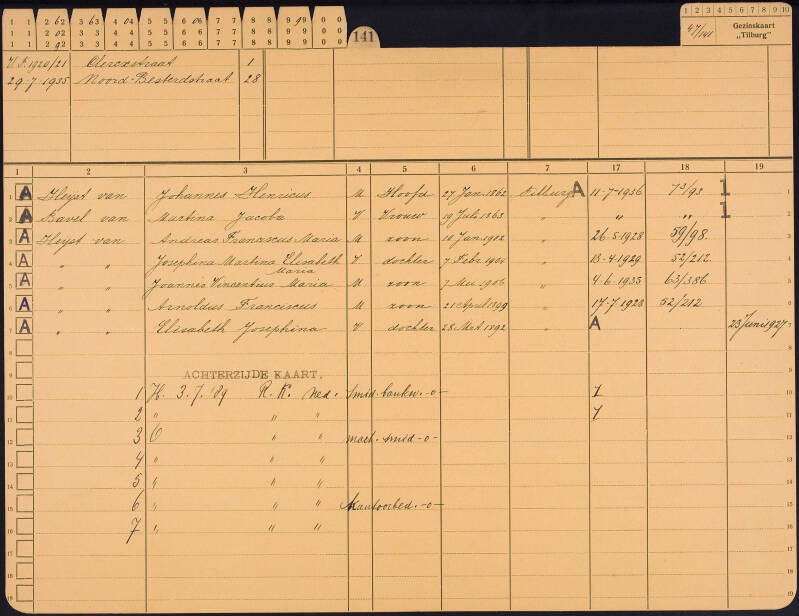 1 1 2 62 3 63 4 04 5 5 6 06 7 7 8 8 9 99 0 0
1 1 2 02 3 3 4 4 5 5 6 6 7 7 8 8 9 9 0 0
1 1 2 92 3 63 4 4 5 5 6 6 7 7 8 8 9 9 0 0
141
1 2 3 4 5 6 7 8 9 10
47/141
Gezinskaart
„Tilburg”
V.T. 1920/21 Clercxstraat 1
29-7-1935 Noord-Besterdstraat 28
1 2 3 4 5 6 7 17 18 19
1 A Heyst van Johannes Henricus M Hoofd 27 Jan. 1862 Tilburg A 11-7-1936 73/93 1 1
2 A Bavel van Martina Jacoba V Vrouw 19 Juli 1863 " " " 1 2
3 A Heyst van Andreas Franciscus Maria M zoon 10 Jan 1902 " 26-5-1928 59/98. 3
4 A " " Josephina Martina Elisabeth Maria V dochter 7 Febr 1904 " 13-4-1929 52/212 4
5 A " " Joannes Vincentius Maria M zoon 7 Mei 1906 " 4-6-1935 63/386 5
6 A " " Arnoldus Franciscus M zoon 21 April 1899 " 17-7-1928 52/212 6
7 A " " Elisabeth Josephina V dochter 28 Mrt 1892 " A 23 Juni 1927 7
8 8
9 ACHTERZIJDE KAART. 9
10 1 H. 3.7.'89 R.K. Ned. Smid-bankw. -o- 1 10
11 2 " " " 1 11
12 3 O " " mach. smid -o- 12
13 4 " " " 13
14 5 " " " 14
15 6 " " " Kantoorbed. -o- 15
16 7 " " " 16
17 17
18 18
19 19